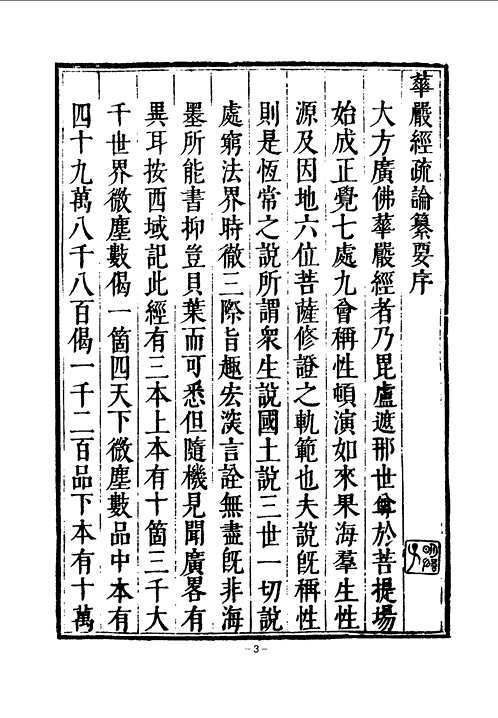 華嚴經疏論纂要序
大方廣佛華嚴經者乃毘盧遮那世尊於菩提場
始成正覺七處九會稱性頓演如來果海羣生性
源及因地六位菩薩修證之軌範也夫說旣稱性
則是恆常之說所謂衆生說國土說三世一切說
處窮法界時徹三際旨趣宏深言詮無盡旣非海
墨所能書抑豈貝葉而可悉但隨機見聞廣畧有
異耳按西域記此經有三本上本有十箇三千大
千世界微塵數偈一箇四天下微塵數品中本有
四十九萬八千八百偈一千二百品下本有十萬
- 3 -